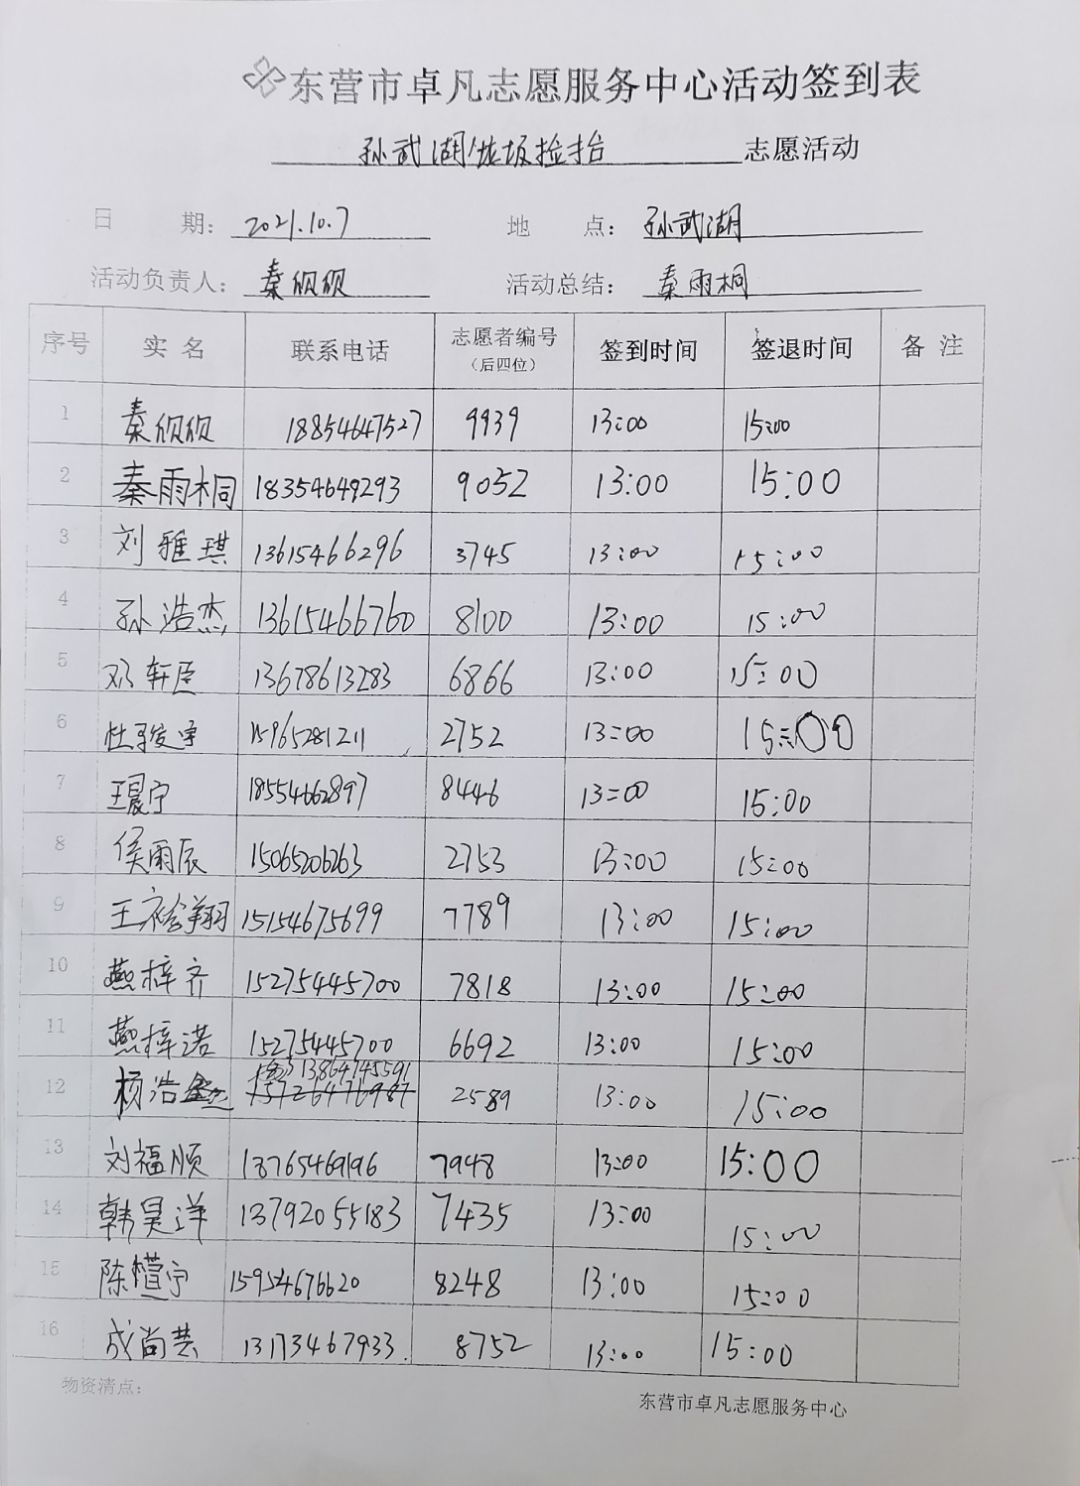 东营市卓凡志愿服务中心活动签到表
孙武湖垃圾捡拾 志愿活动
日 期: 2021.10.7 地 点: 孙武湖
活动负责人: 秦硕硕 活动总结: 秦雨桐
序号 实 名 联系电话 志愿者编号(后四位) 签到时间 签退时间 备 注
1 秦硕硕 18854647527 9939 13:00 15:00
2 秦雨桐 18354649293 9052 13:00 15:00
3 刘雅琪 13615466296 3745 13:00 15:00
4 孙浩杰 13615466760 8100 13:00 15:00
5 邓轩臣 13678613283 6866 13:00 15:00
6 杜骏宇 15965281211 2752 13:00 15:00
7 王晨宁 18554662897 8446 13=00 15:00
8 侯雨辰 15065206263 2753 13:00 15:00
9 王裕翔 15154675699 7789 13:00 15:00
10 燕梓齐 15275445700 7818 13:00 15:00
11 燕梓诺 15275445700 6692 13:00 15:00
12 杨浩 13864745591 2589 13:00 15:00
13 刘福顺 13765469196 7948 13:00 15:00
14 韩昊洋 13792055183 7435 13:00 15:00
15 陈 宁 15954676620 8248 13:00 15:00
16 成尚芸 13173467933 8752 13:00 15:00
物资清点:
东营市卓凡志愿服务中心